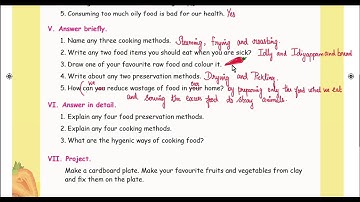 5. Consuming too much oily food is bad for our health. Yes
V. Answer briefly.
1. Name any three cooking methods. Steaming, frying and roasting.
2. Write any two food items you should eat when you are sick? Idly and Idiyappam and bread
3. Draw one of your favourite raw food and colour it.
4. Write about any two preservation methods. Drying and Pickling.
5. How can you reduce wastage of food in your home? by preparing only the food what we eat
we our
and serving the excess food to stray animals.
VI. Answer in detail.
1. Explain any four food preservation methods.
2. Explain any four cooking methods.
3. What are the hygienic ways of cooking food?
VII. Project.
Make a cardboard plate. Make your favourite fruits and vegetables from clay
and fix them on the plate.